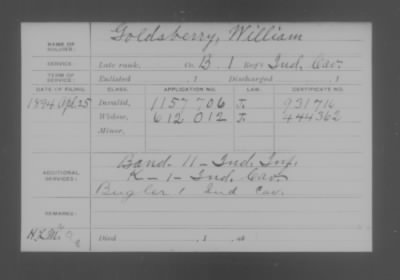 NAME OF SOLDIER: Goldsberry, William
SERVICE: Late rank, Co. B. 1 Reg't Ind. Cav.
TERM OF SERVICE: Enlisted , 1 Discharged , 1
DATE OF FILING. CLASS. APPLICATION NO. LAW. CERTIFICATE NO.
1894 Apl. 25 Invalid, 1157 706 931 716
Widow, 612 012 444362
Minor,
ADDITIONAL SERVICES: Band. 11 - Ind. Inf.
K - 1 - Ind. Cav.
Bugler 1 Ind Cav.
REMARKS:
Died , 1 , at